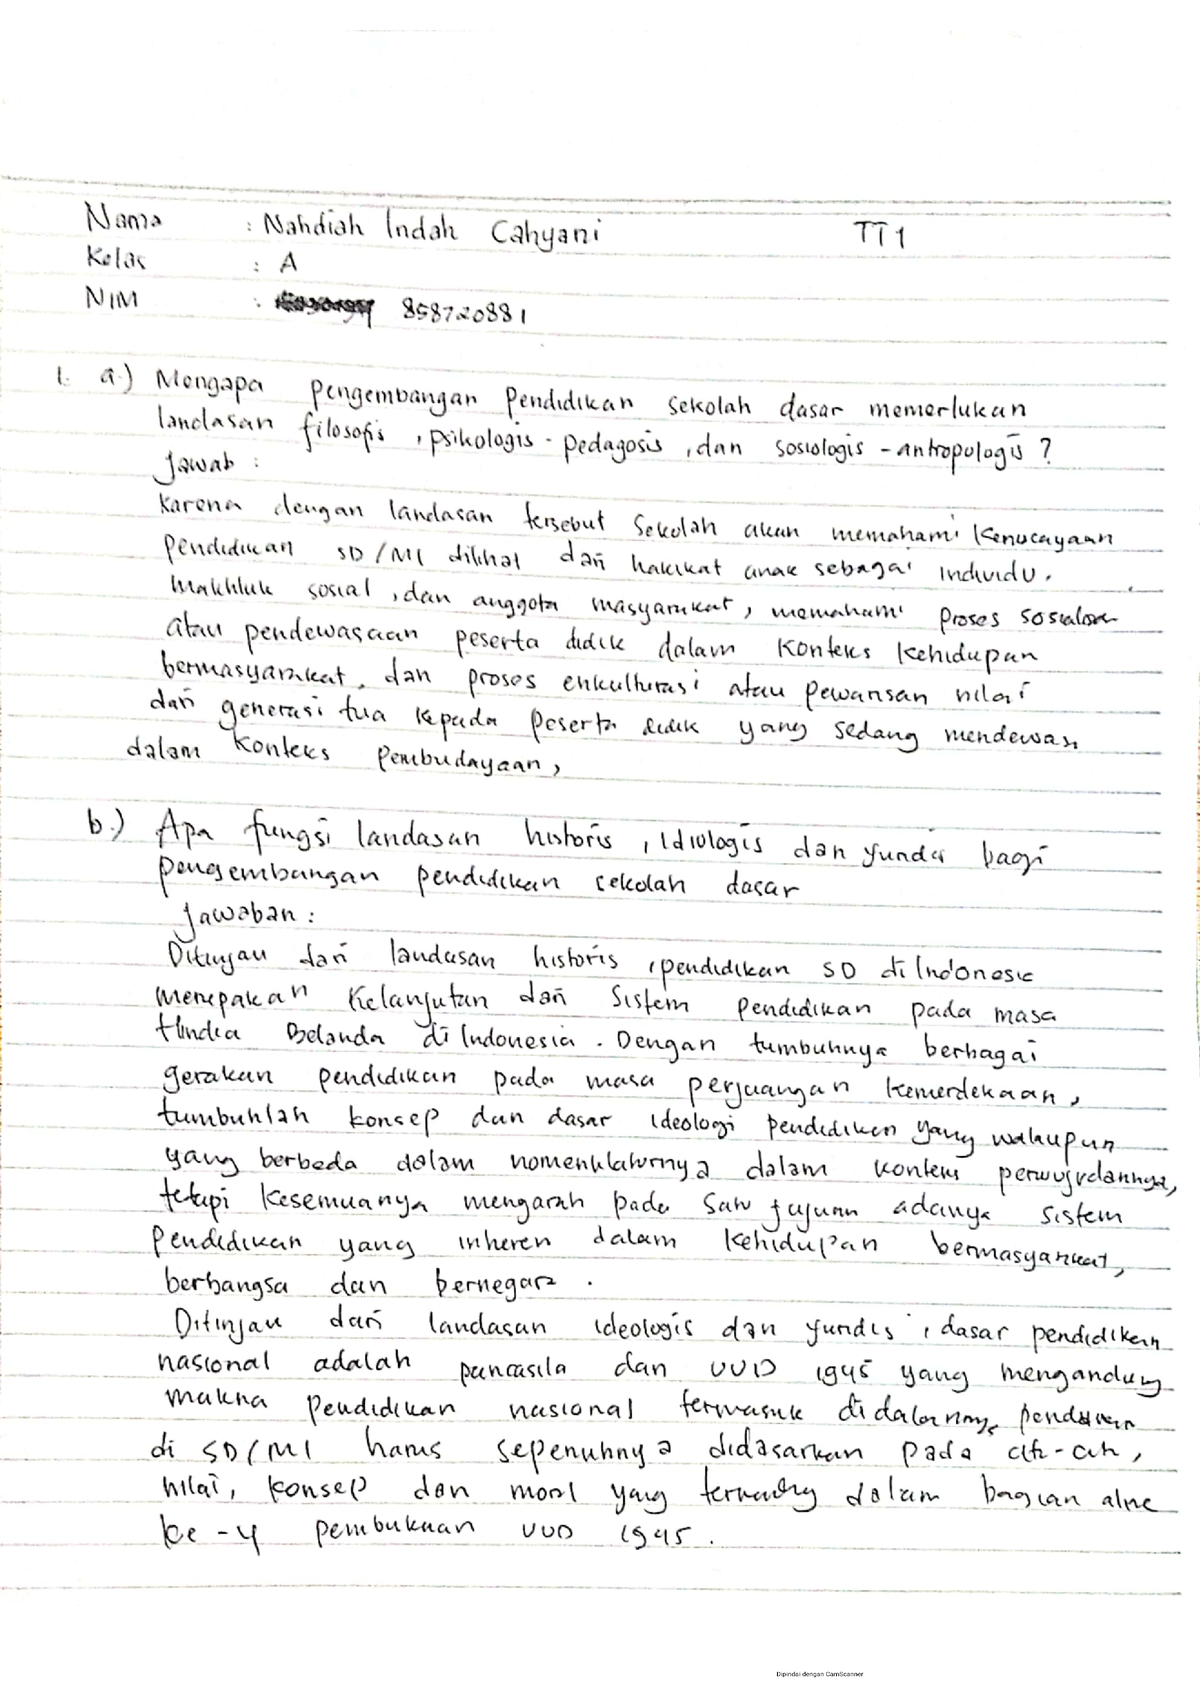 Nama : Nahdiah Indah Cahyani TT1
Kelas : A
NIM : 858720881
1. a.) Mengapa pengembangan pendidikan sekolah dasar memerlukan
landasan filosofis, psikologis-pedagosis, dan sosiologis-antropologis?
Jawab :
Karena dengan landasan tersebut sekolah akan memahami
pendidikan SD/MI dilihat dari hakikat anak sebagai individu.
Makhluk sosial, dan anggota masyarakat, memahami proses
atau pendewasaan peserta didik dalam konteks kehidupan
bermasyarakat, dan proses enkulturasi atau pewarisan nilai
dari generasi tua kepada peserta didik yang sedang mendewasa
dalam konteks pembudayaan,
b.) Apa fungsi landasan historis, idiologis dan yundis bagi
pengembangan pendidikan sekolah dasar
Jawaban :
Ditinjau dari landasan historis, pendidikan SD di Indonesia
merupakan kelanjutan dari sistem pendidikan pada masa
Hindia Belanda di Indonesia. Dengan tumbuhnya berbagai
gerakan pendidikan pada masa perjuangan kemerdekaan,
tumbuhlah konsep dan dasar ideologi pendidikan yang walaupun
yang berbeda dalam nomenklaturnya dalam konteks perwujudannya,
tetapi kesemuanya mengarah pada satu tujuan adanya sistem
pendidikan yang inheren dalam kehidupan bermasyarakat,
berbangsa dan bernegara.
Ditinjau dari landasan ideologis dan yundis, dasar pendidikan
nasional adalah pancasila dan UUD 1945 yang mengandung
makna pendidikan nasional termasuk didalamnya pendidikan
di SD/MI harus sepenuhnya didasarkan pada cita-cita,
nilai, konsep dan moral yang terkandung dalam bagian aline
ke-4 pembukaan UUD 1945.
Dipindai dengan CamScanner